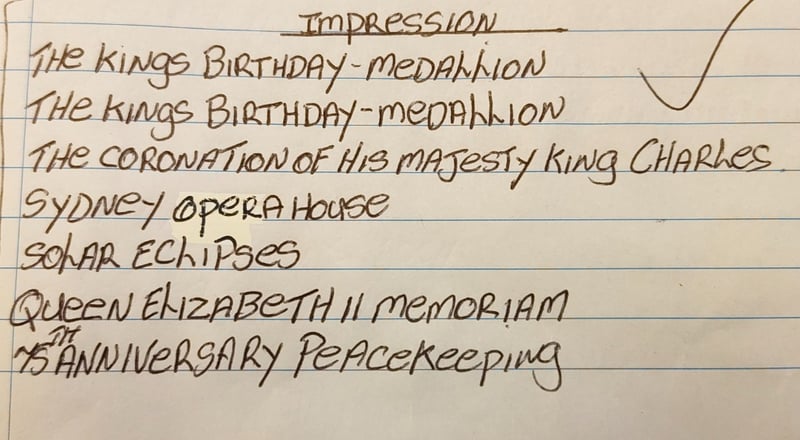 IMPRESSION
THE KINGS BIRTHDAY-MEDALLION
THE KINGS BIRTHDAY-MEDALLION
THE CORONATION OF HIS MAJESTY KING CHARLES
SYDNEY OPERA HOUSE
SOLAR ECLIPSES
QUEEN ELIZABETH II MEMORIAM
75TH ANNIVERSARY PEACEKEEPING